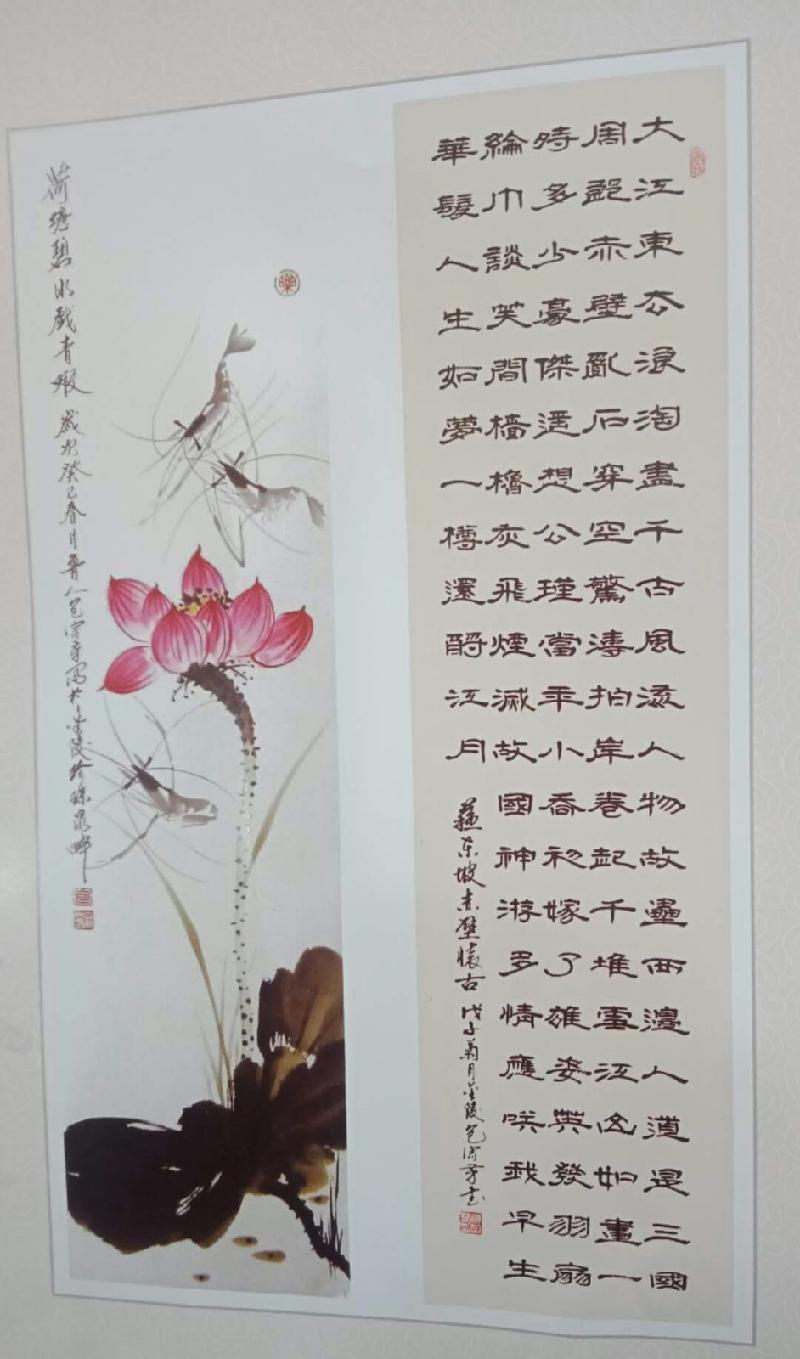 大江東去浪淘盡千古風流人物故壘西邊人道是三國
周郎赤壁亂石穿空驚濤拍岸卷起千堆雪江山如畫一
時多少豪傑遥想公瑾當年小喬初嫁了雄姿英發羽扇
綸巾談笑間檣櫓灰飛煙滅故國神游多情應咲我早生
華髮人生如夢一樽還酹江月
蘇东坡赤壁懷古 戊子菊月金陵包
荷塘碧水戲青蝦 歲次癸巳春月 人包 寫於金陵珍珠泉畔